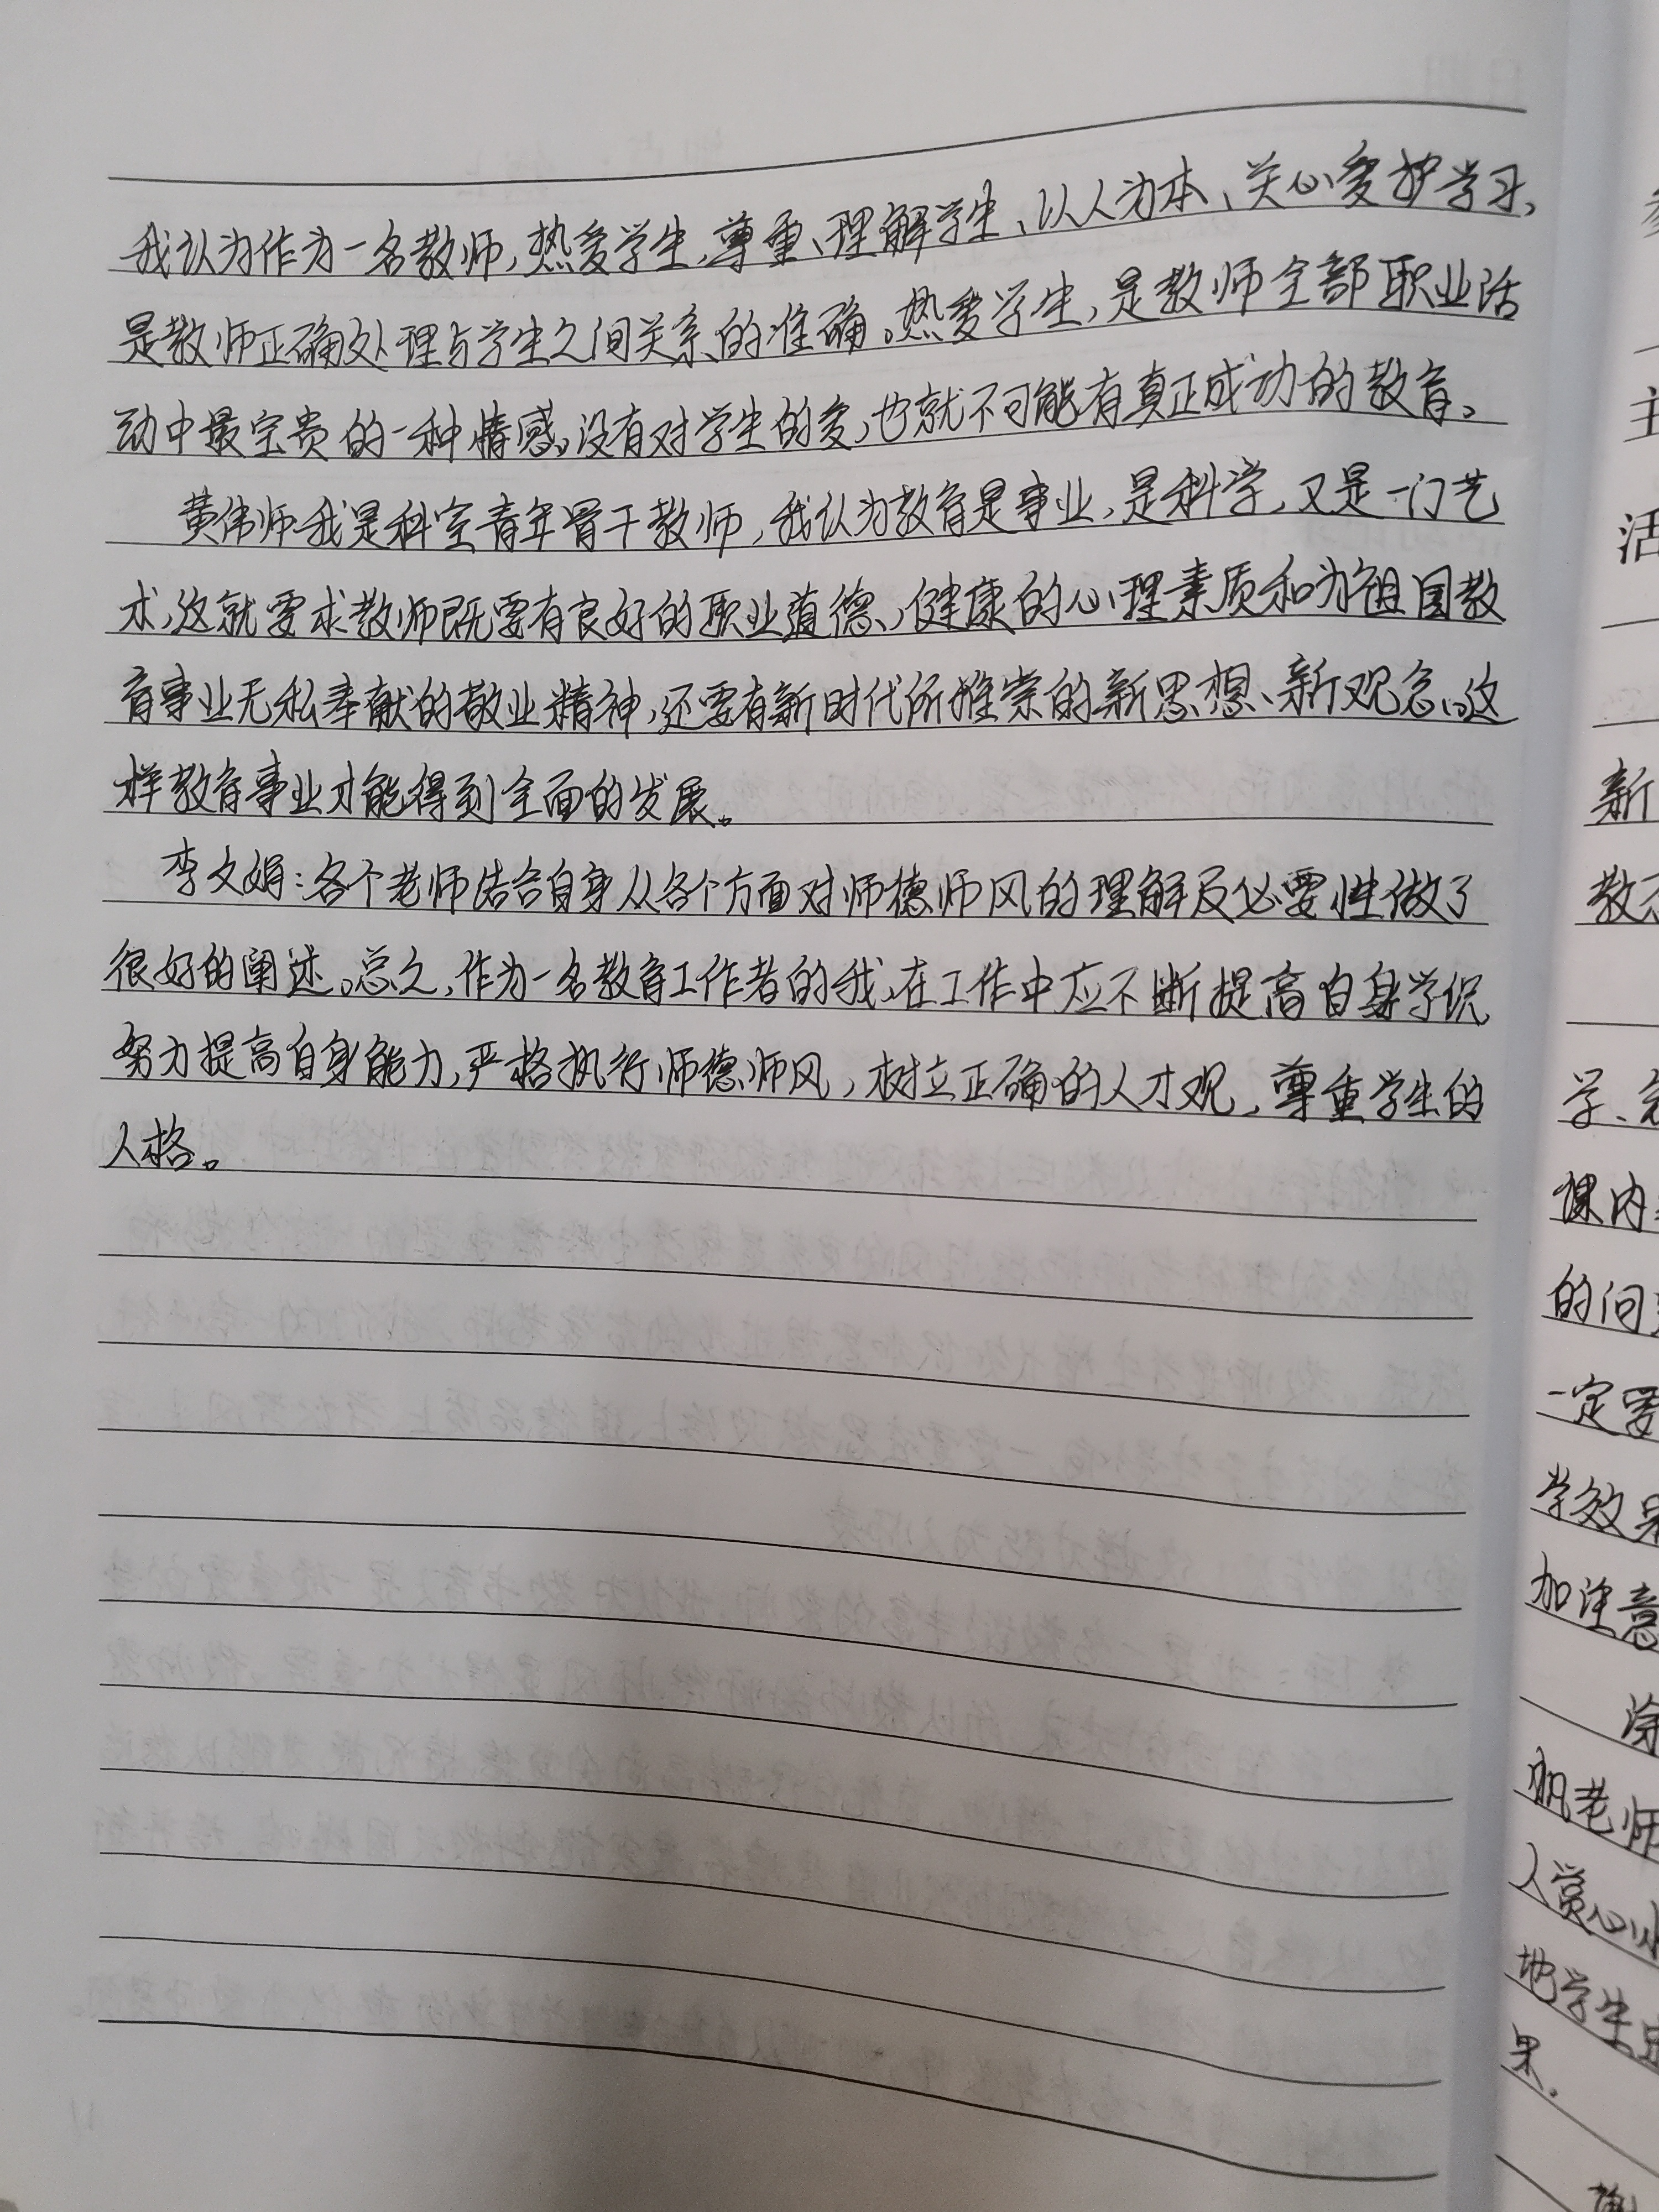 我认为作为一名教师,热爱学生,尊重、理解学生、以人为本、关心爱护学习,
是教师正确处理与学生之间关系的准确。热爱学生,是教师全部职业活
动中最宝贵的一种情感。没有对学生的爱,也就不可能有真正成功的教育。
黄伟师:我是科室青年骨干教师,我认为教育是事业,是科学,又是一门艺
术,这就要求教师既要有良好的职业道德、健康的心理素质和为祖国教
育事业无私奉献的敬业精神,还要有新时代所推崇的新思想、新观念。这
样教育事业才能得到全面的发展。
李文娟:各个老师结合自身从各个方面对师德师风的理解及必要性做了
很好的阐述。总之,作为一名教育工作者的我,在工作中应不断提高自身学识
努力提高自身能力,严格执行师德师风,树立正确的人才观,尊重学生的
人格。
主
活
新
教
学、
课内
的问
一定要
学效果
加注意
涂
帆老师
人赏心
地学生
果.